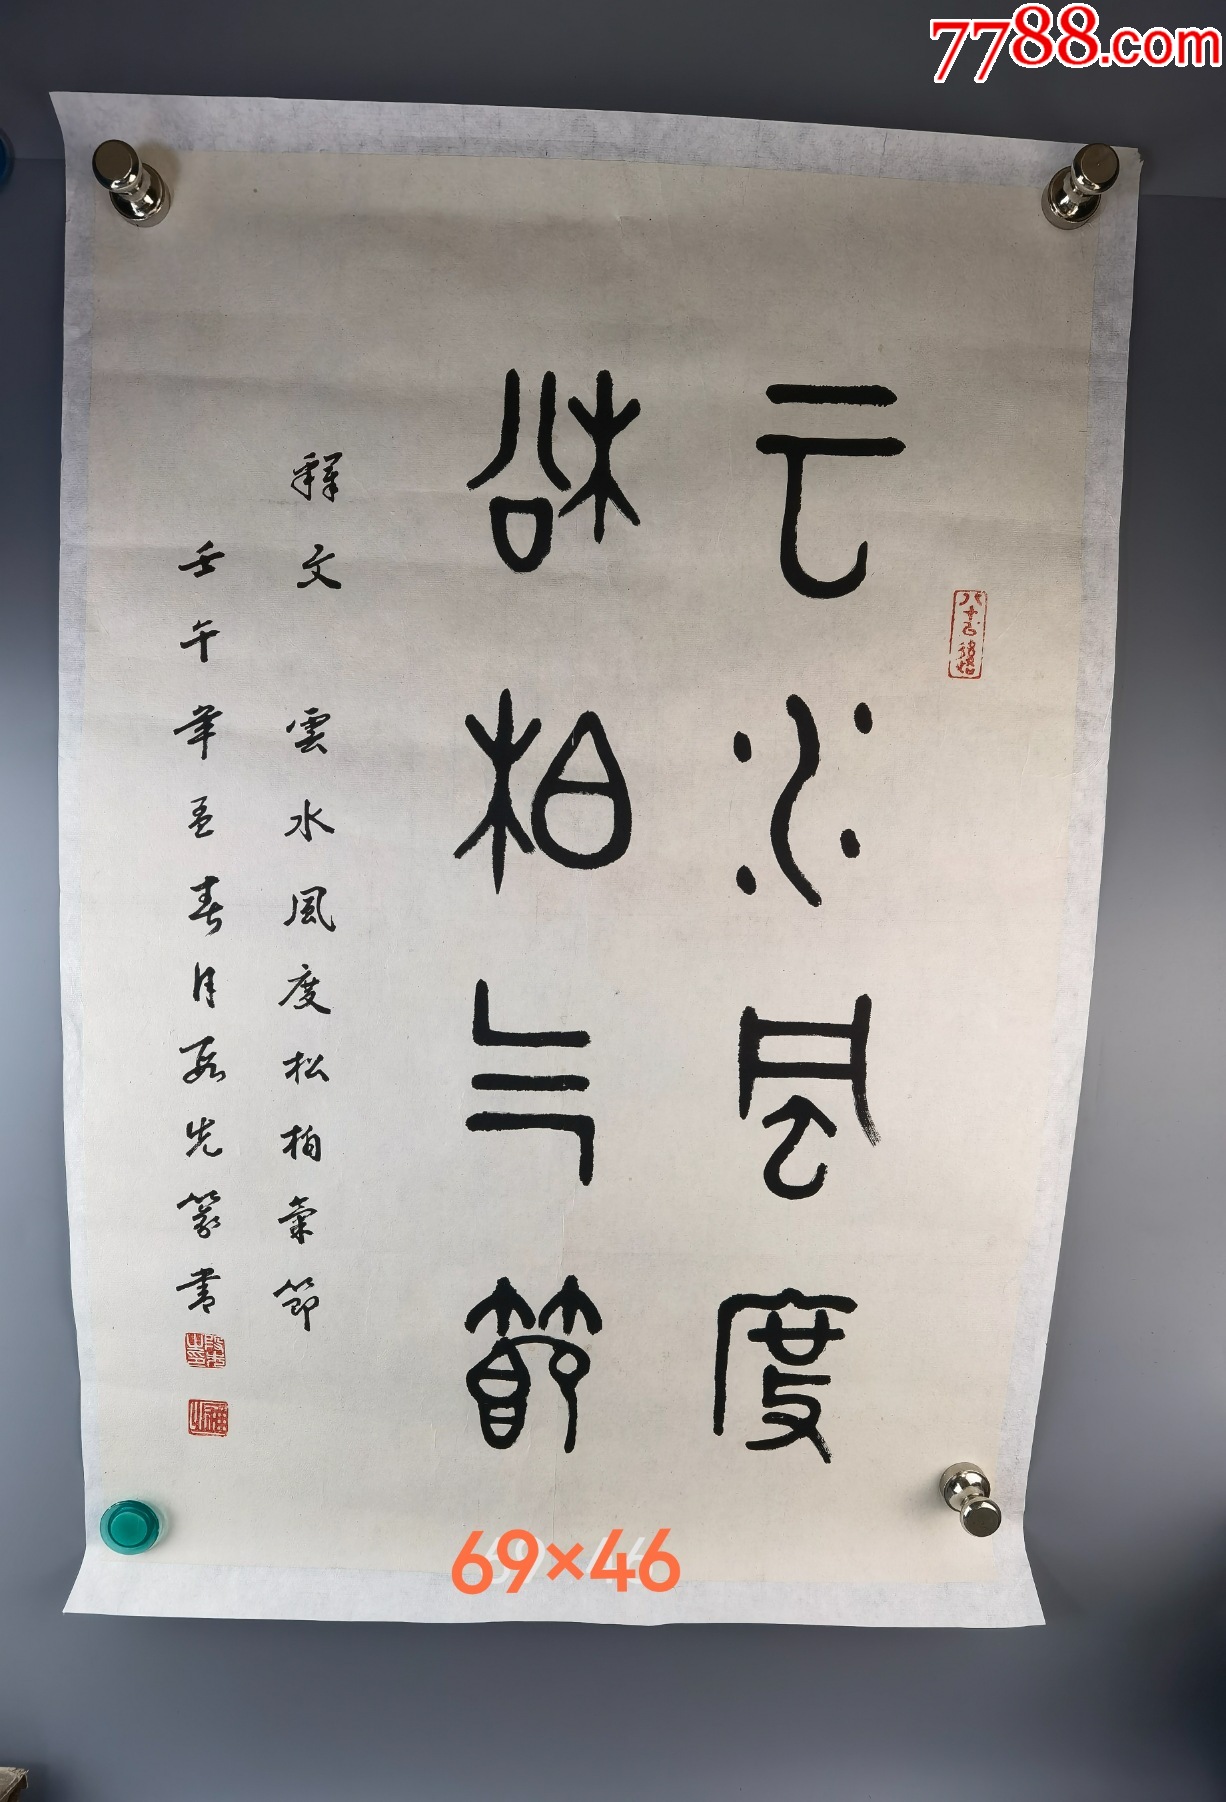 7788.com
云水風度
松柏气節
释文 雲水風度松柏氣節
壬午年孟春月段先篆書
69×46